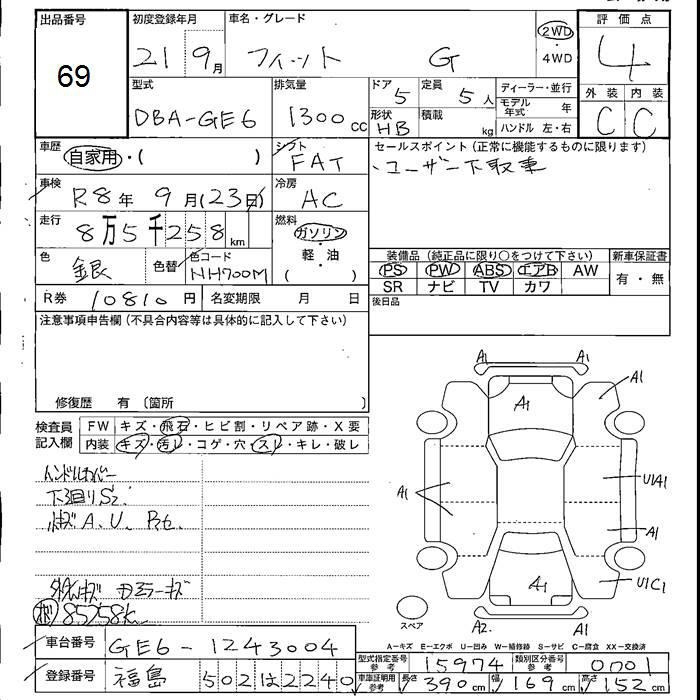 出品番号
69
初度登録年月
21 9月
車名・グレード
フィット G
2WD
・
4WD
評価点
4
外装 内装
C C
型式
DBA-GE6
排気量
1300cc
ドア 5
形状 HB
定員 5人
積載 kg
ディーラー・並行
モデル年式 年
ハンドル 左・右
車歴
自家用・( )
シフト
FAT
セールスポイント (正常に機能するものに限ります)
ユーザー下取車
車検
R8年 9月(23日)
冷房
AC
走行
8万5千258km
燃料
ガソリン
軽・油
( )
色
銀
色替
色コード
NH700M
装備品 (純正品に限り○をつけて下さい)
PS PW ABS エアB AW
SR ナビ TV カワ
新車保証書
有・無
R券 10810円
名変期限 月 日
後日品
注意事項申告欄 (不具合内容等は具体的に記入して下さい)
修復歴 有 〔箇所 〕
検査員
記入欄
FW キズ・飛石・ヒビ割・リペア跡・X要
内装 キズ・汚レ・コゲ・穴・スレ・キレ・破レ
ハンドルカバー
下廻りS2.
85258km
A1 A1
A1
A1
A1
U1A1
A1
A1
U1C1
A2. A1
スペア
A-キズ E-エクボ U-凹み W-補修跡 S-サビ C-腐食 XX-交換済
車台番号 GE6-1243004
登録番号 福島 502は2240
型式指定番号 参考 15974
類別区分番号 参考 0001
車庫証明用 参考 長さ 390cm 幅 169cm 高さ 152cm